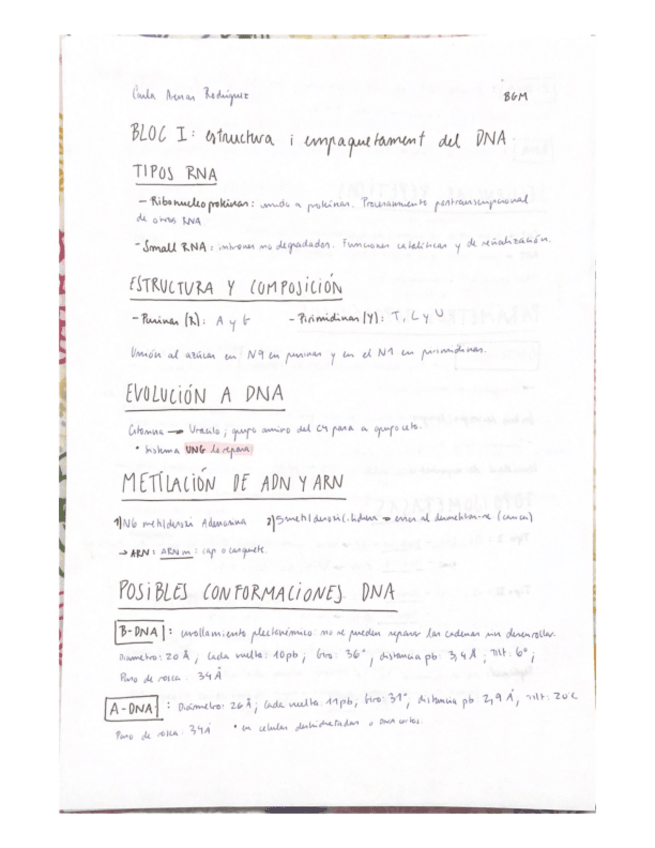 Carla Rodríguez
BGM
BLOC I: estructura i empaquetament del DNA.
TIPOS RNA
- Ribonucleoproteinas: unido a proteinas. Procesamiento postranscripcional
de otros RNA.
- Small RNA: intrones no degradados. Funciones catalíticas y de señalización.
ESTRUCTURA Y COMPOSICIÓN
- Purinas (R): A y G - Pirimidinas (Y): T, C y U
Unión al azúcar en N9 en purinas y en el N1 en pirimidinas.
EVOLUCIÓN A DNA
Citosina → Uracilo; grupo amino del C4 pasa a grupo ceto.
• Sistema UNG lo repara
METILACIÓN DE ADN Y ARN
1) N6 metildesoxi Adenosina 2) 5metildesoxi → error al (cáncer)
→ ARN: ARNm: cap o casquete.
POSIBLES CONFORMACIONES DNA
B-DNA: enrollamiento plectonémico: no se pueden separar las cadenas sin desenrollar.
Diámetro: 20 Å; Cada vuelta: 10pb; Giro: 36°; distancia pb: 3,4 Å; Tilt: 6°;
Paso de rosca: 34 Å
A-DNA: Diámetro: 26 Å; Cada vuelta: 11pb; Giro: 31°; distancia pb: 2,9 Å; Tilt: 20
Paso de rosca: 34Å • en celulas deshidratadas o